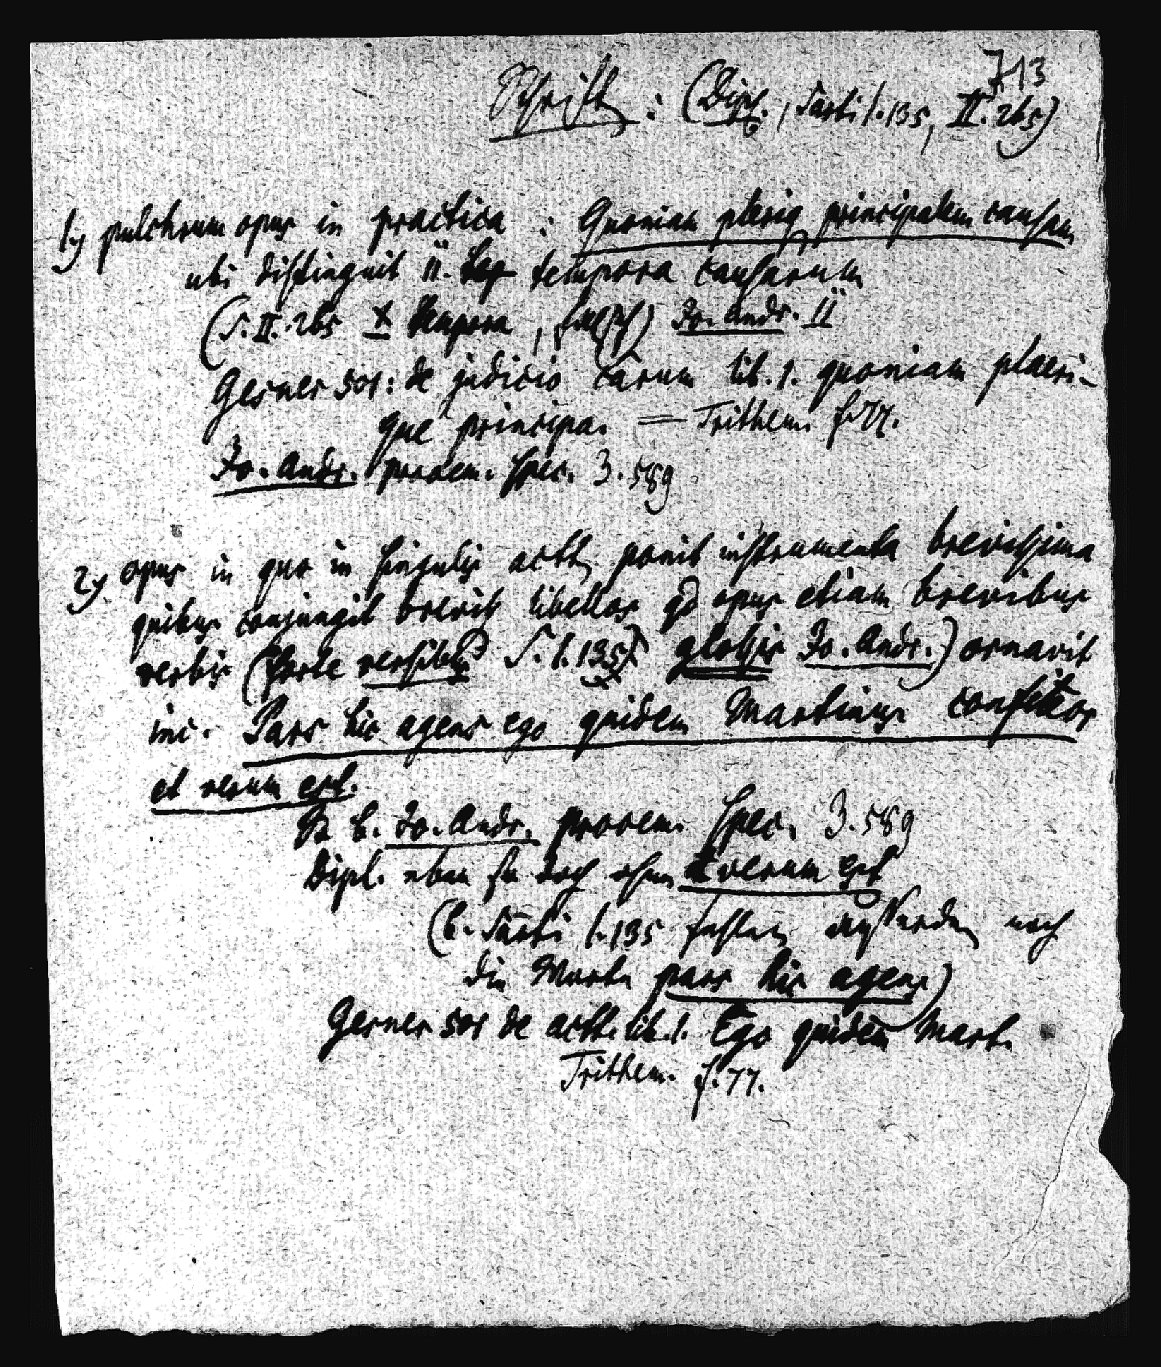 713
Schrift: (Dipl., Sarti I. 135, II. 265)
1) pulchrum opus in practica: Quoniam pleriq principalem causam
ubi distinguit II. tempora causarum
(S. II. 265 X tempora,) Jo. Andr. II
Gesner 501: de judicio earum lib. 1. quoniam plaeri-
que principa. = Trithem. f. 77.
Jo. Andr. prooem. Spec. 3. 589
2) opus in quo in singulis actt ponit instrumenta brevissima
quibus conjungit brevis libellos qd opus etiam brevibus
verbis (forte versibus? S. I. 135) glossis Jo. Andr.) ornavit
inc. Pars hic agens ego quidem Martinus confiteor
et verum est.
B. Jo. Andr. prooem. Spec. 3. 589
Dipl. eben so doch ohne et verum est
(b. Sarti I. 135 fehlen noch
die Worte pars hic agens)
Gesner 501 de actt. lib. 1. Ego quidem Mart.
Trithem. f. 77.